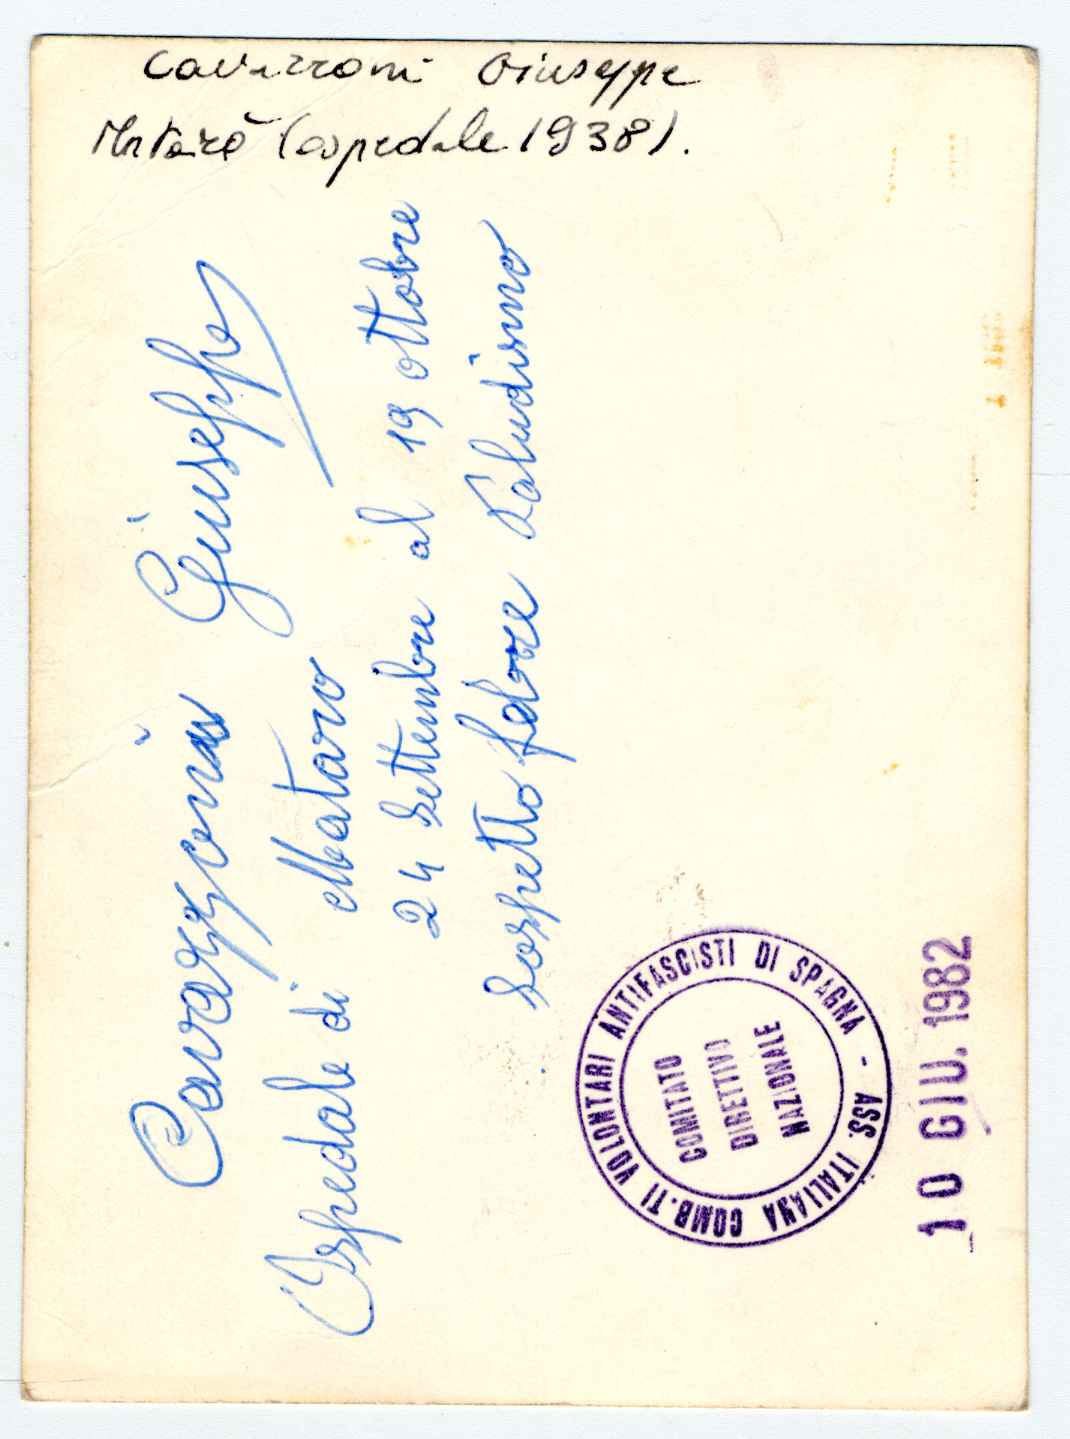 Cavazzoni Giuseppe
Mataró (ospedale 1938).
Cavazzoni Giuseppe
Ospedale di Mataro
24 Settembre al 19 ottobre
Sospetto febbre Paludismo
ASS. ITALIANA COMB.TI VOLONTARI ANTIFASCISTI DI SPAGNA -
COMITATO
DIRETTIVO
NAZIONALE
10 GIU. 1982